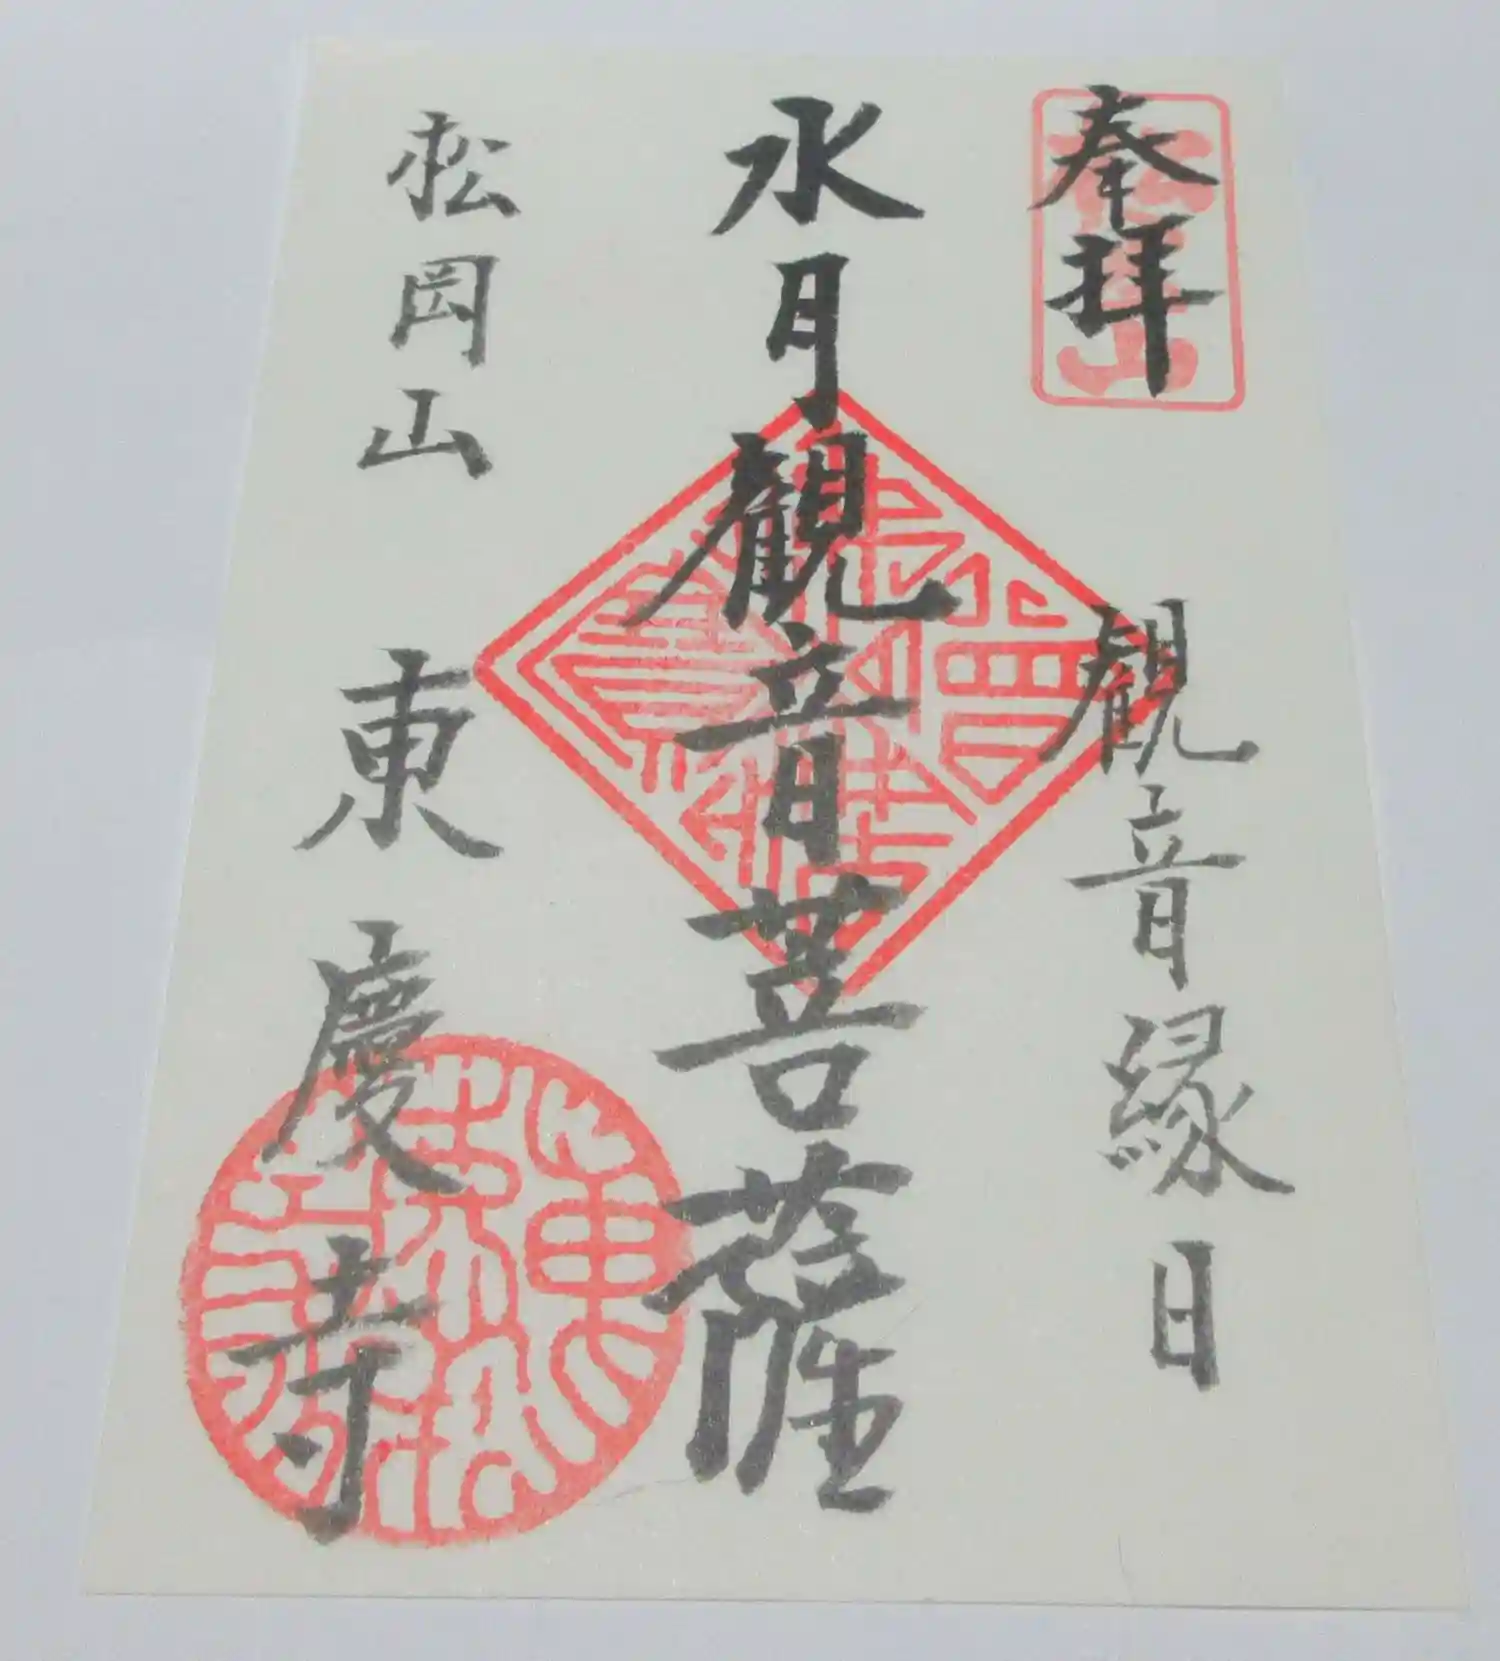 奉拝
観音縁日
水月観音菩薩
松岡山 東慶寺